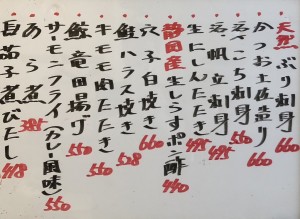 天然ぶり刺身 660
かつお土佐造り 660
こち刺身 550
帆立刺身 495
生にしんたたき 495
静岡産生しらすポン酢 440
穴子白焼き 660
鮭ハラス焼き 528
牛モモ肉たたき 550
鯨竜田揚げ 550
サーモンフライ(カレー風味) 550
あら煮 385
白茄子煮びたし 418